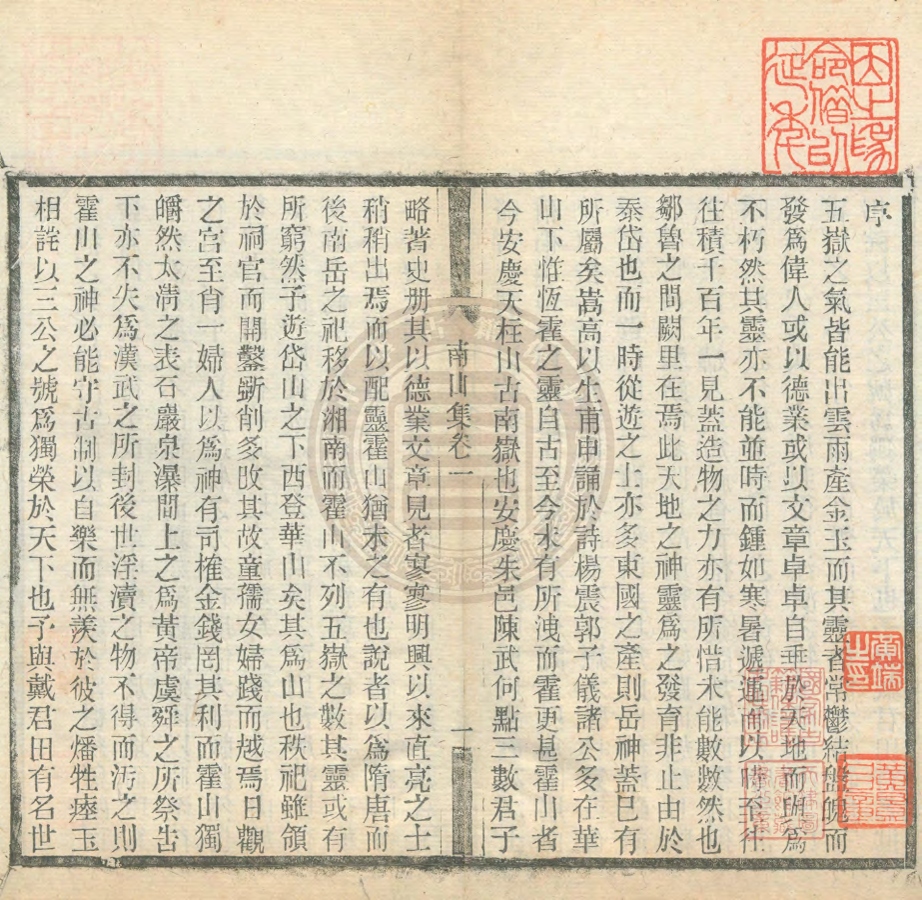 序
五嶽之氣皆能出雲雨產金玉而其靈者常鬱結盤魄而
發爲偉人或以德業或以文章卓卓自垂於天地而與爲
不朽然其靈亦不能並時而鍾如寒暑遞運而以時至往
往積千百年一見蓋造物之力亦有所惜未能數數然也
鄒魯之間闕里在焉此天地之神靈爲之發育非止由於
泰岱也而一時從遊之士亦多東國之產則岳神蓋已有
所屬矣嵩高以生甫申誦於詩楊震郭子儀諸公多在華
山下惟恆霍之靈自古至今未有所洩而霍更甚霍山者
今安慶天柱山古南嶽也安慶朱邑陳武何點三數君子
南山集卷一
一
略著史册其以德業文章見者寥寥明興以來直亮之士
稍稍出焉而以配靈霍山猶未之有也說者以爲隋唐而
後南岳之祀移於湘南而霍山不列五嶽之數其靈或有
所窮然予遊岱山之下西登華山矣其爲山也秩祀雖領
於祠官而開鑿斲削多改其故童孺女婦踐而越焉日觀
之宮至肖一婦人以爲神有司榷金錢罔其利而霍山獨
皭然太清之表石巖泉瀑間上之爲黃帝虞舜之所祭告
下亦不失爲漢武之所封後世淫瀆之物不得而汚之則
霍山之神必能守古制以自樂而無羨於彼之燔牲瘞玉
相詫以三公之號爲獨榮於天下也予與戴君田有名世
黃端之印